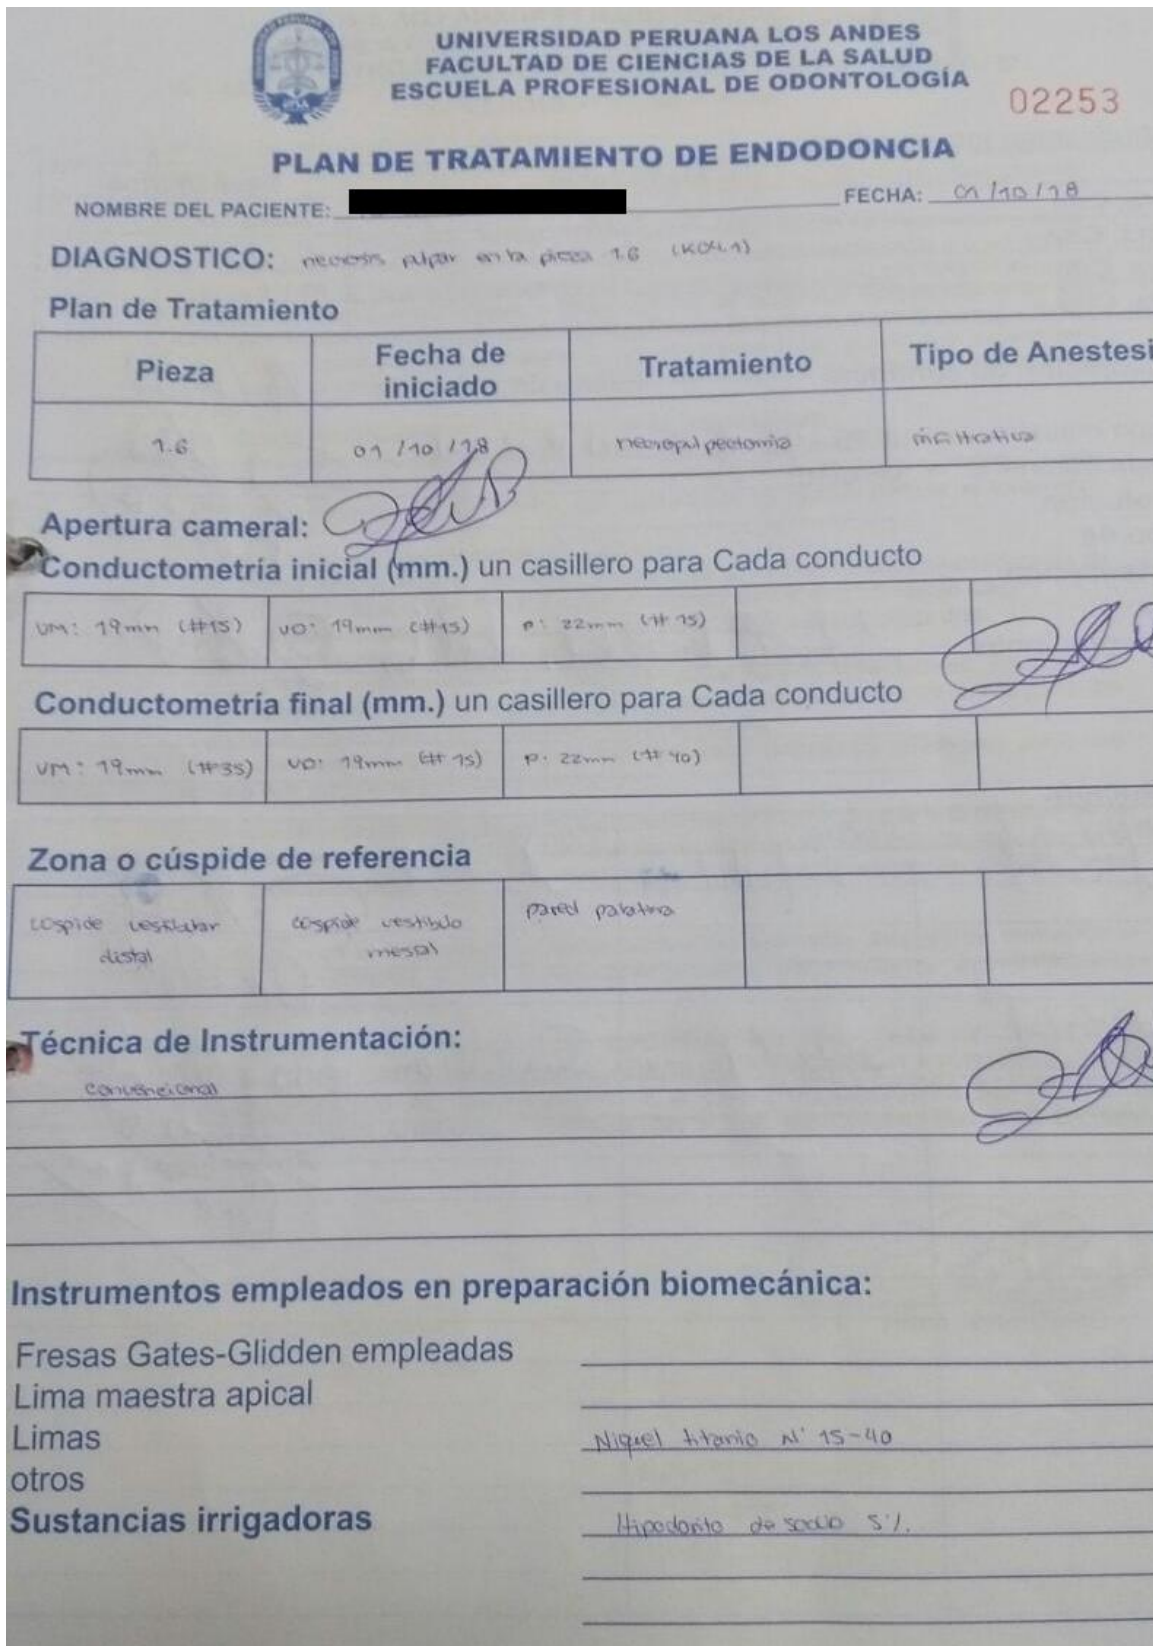 UNIVERSIDAD PERUANA LOS ANDES
FACULTAD DE CIENCIAS DE LA SALUD
ESCUELA PROFESIONAL DE ODONTOLOGÍA
02253
PLAN DE TRATAMIENTO DE ENDODONCIA
NOMBRE DEL PACIENTE: FECHA: 01/10/18
DIAGNOSTICO: necrosis pulpar en la pieza 1.6 (K04.1)
Plan de Tratamiento
Pieza Fecha de iniciado Tratamiento Tipo de Anestesi
1.6 01/10/18 necropulpectomia infiltrativa
Apertura cameral:
Conductometría inicial (mm.) un casillero para Cada conducto
VM: 19mm (#15) VD: 19mm (#15) P: 22mm (#15)
Conductometría final (mm.) un casillero para Cada conducto
VM: 19mm (#35) VD: 19mm (#15) P: 22mm (#40)
Zona o cúspide de referencia
cúspide vestibular distal cúspide vestibulo mesial pared palatina
Técnica de Instrumentación:
convencional
Instrumentos empleados en preparación biomecánica:
Fresas Gates-Glidden empleadas
Lima maestra apical
Limas Niquel titanio N° 15-40
otros
Sustancias irrigadoras Hipoclorito de sodio 5%.